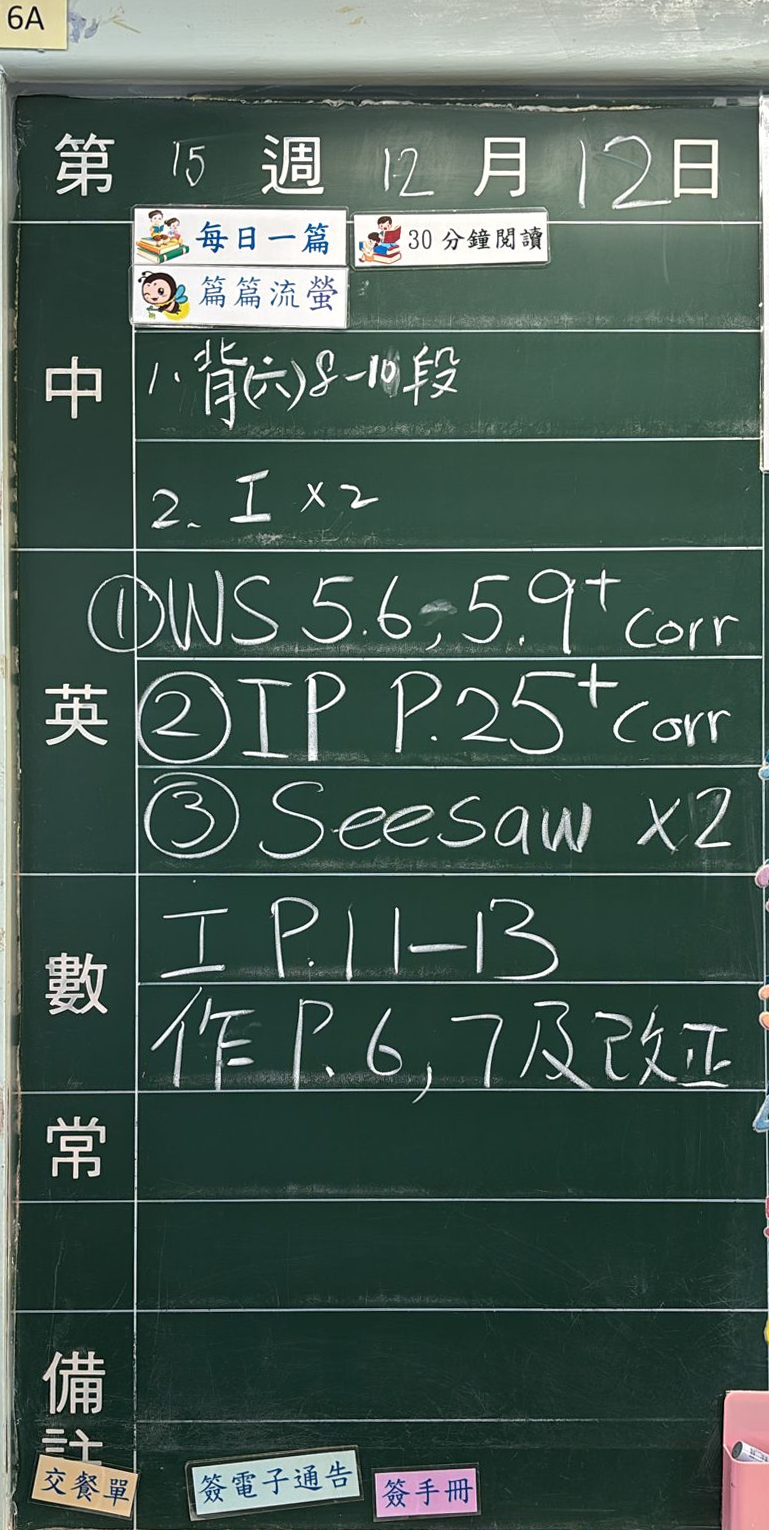 6A
第 15 週 12 月 12 日
每日一篇 30 分鐘閱讀
篇篇流螢
中
1. 背(六)8-10段
2. I ×2
英
① WS 5.6, 5.9 + corr
② IP P.25 + corr
③ Seesaw ×2
數
I P.11-13
作 P.6, 7及改正
常
備註
交餐單 簽電子通告 簽手冊